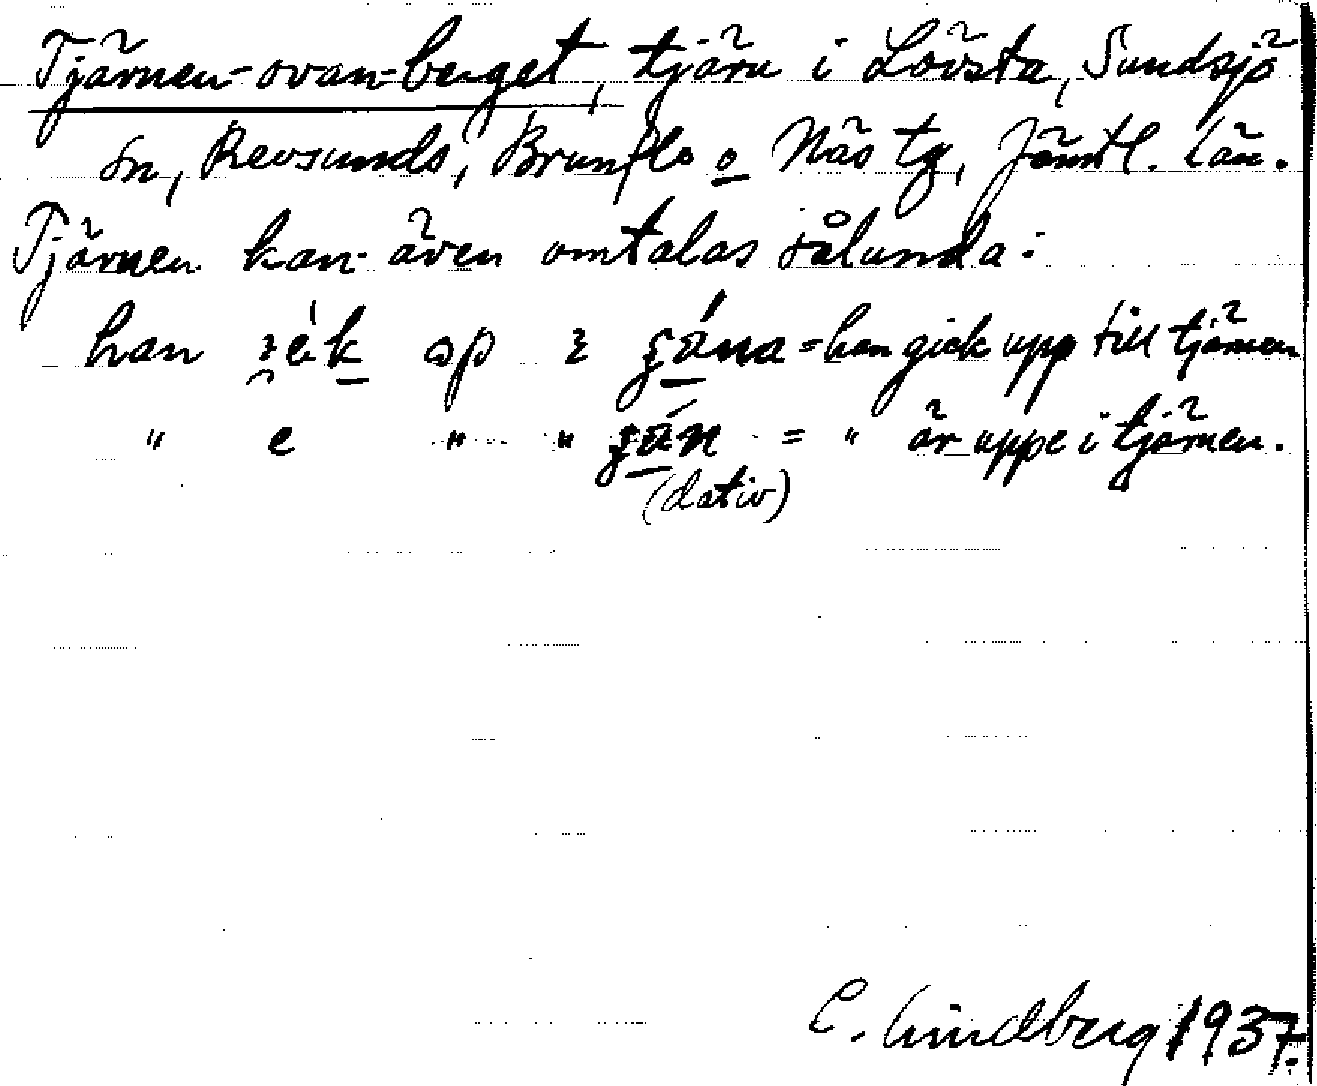 Tjärnen-ovan-berget, tjärn i Lövsta, Sundsjö
sn, Revsunds, Brunflo o Näs tg, Jämtl. län.
Tjärnen kan även omtalas sålunda:
han op = han gick upp till tjärnen
" e " " = " är uppe i tjärnen.
(dativ)
C. Lindberg 1937.